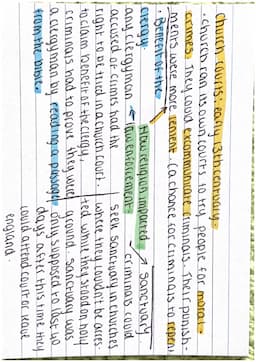 Church courts: early 13th century.
· church ran its own courts to try people for moral
crimes. They could excommunicate criminals. Their punish-
ments were more lenient. (a chance for criminals to repen
· Benefit of the
clergy
any clergyman
accused of crimes had the
right to be tried in a church court.
to claim benefit of the clergy,
criminals had to prove they were
a clergyman by reading a passage
from the bible.
How religion impacted
law enforcement
Sanctuary
criminals could
seek sanctuary in churches
they couldn't be arres-
ted while they stood on holy
ground. Sanctuary was
only supposed to last 40
days after this time they
could attend court or leave
england.